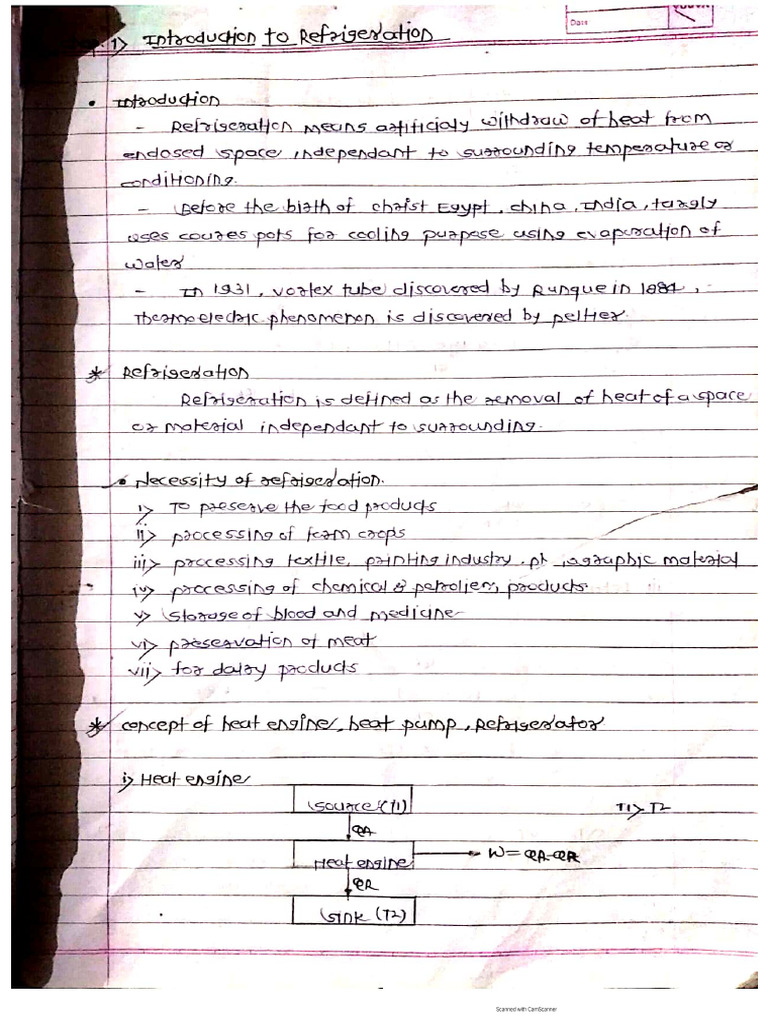 Date
1) Introduction to Refrigeration
• Introduction
- Refrigeration means artificialy withdraw of heat from
enclosed space independant to surrounding temperature or
conditioning.
- Before the birth of christ Egypt, china, India, largly
uses coures pots for cooling purpose using evapuration of
water
- In 1931, vortex tube discovered by Runque in 1884,
Thermoelectric phenomenon is discovered by peltier.
* Refrigeration
Refrigeration is defined as the removal of heat of a space
or material independant to surrounding.
• Necessity of refrigeration.
i) To preserve the food products
ii) processing of farm crops
iii) processing textile, printing industry, material
iv) processing of chemical & products.
v) storage of blood and medicine
vi) preservation of meat
vii) for dairy products
* concept of heat engine, heat pump, Refrigerator
i) Heat engine
source (T1)
T1 > T2
QA
Heat engine
W = QA-QR
QR
sink (T2)
Scanned with CamScanner